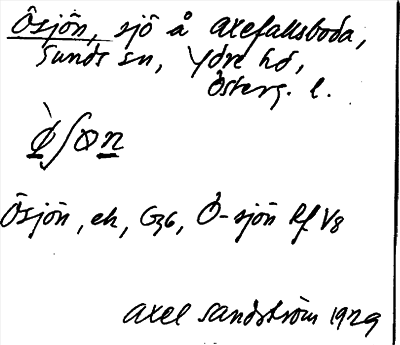 Ösjön, sjö å Axefallsboda,
Sunds sn, Ydre hd,
Österg. l.
Ösjön, ek, G36, Ö-sjön Rf V8
Axel Sandström 1929